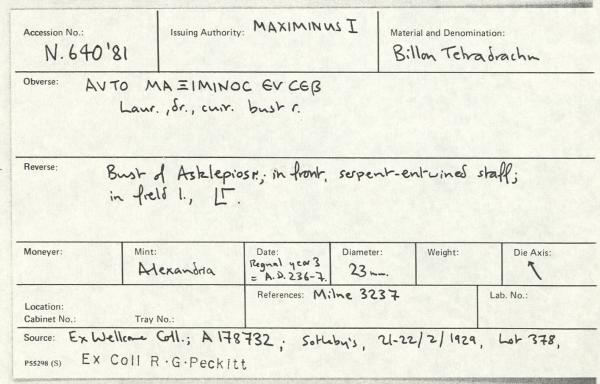 Accession No.: N.640'81
Issuing Authority: MAXIMINUS I
Material and Denomination: Billon Tetradrachm
Obverse: ΑVΤΟ ΜΑΞΙΜΙΝΟC ЄVCЄΒ
Laur., dr., cuir. bust r.
Reverse: Bust of Asklepios r.; in front, serpent-entwined staff;
in field l., LΓ.
Moneyer:
Mint: Alexandria
Date: Regnal year 3
= A.D. 236-7.
Diameter: 23 mm.
Weight:
Die Axis: ↖
Location:
Cabinet No.: Tray No.:
References: Milne 3237
Lab. No.:
Source: Ex Wellcome Coll.; A 178732; Sotheby's, 21-22/2/1929, Lot 378,
P55298 (S) Ex Coll R.G.Peckitt